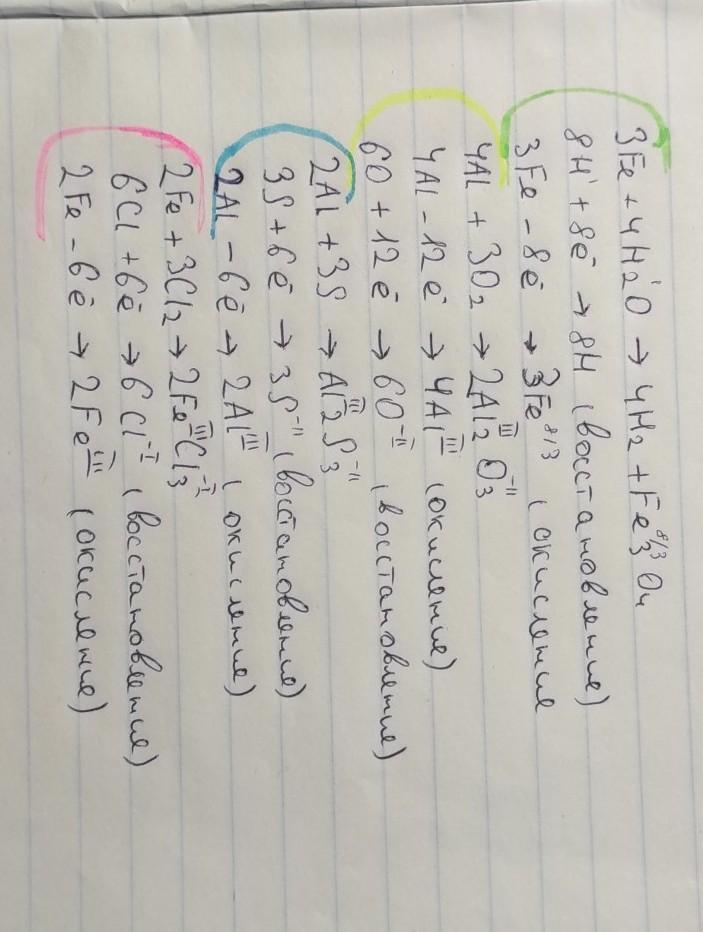 3Fe + 4H₂ᴵO → 4H₂ + Fe₃^8/3 O₄
8Hᴵ + 8ē → 8H (восстановление)
3Fe - 8ē → 3Fe^8/3 (окисление
4Al + 3O₂ → 2Al₂^III O₃^-II
4Al - 12ē → 4Al^III (окисление)
6O + 12ē → 6O^-II (восстановление)
2Al + 3S → Al₂^III S₃^-II
3S + 6ē → 3S^-II (восстановление)
2Al - 6ē → 2Al^III (окисление)
2Fe + 3Cl₂ → 2Fe^III Cl₃^-I
6Cl + 6ē → 6Cl^-I (восстановление)
2Fe - 6ē → 2Fe^III (окисление)